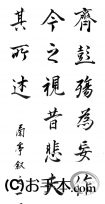 齊彭殤為妄作
今之視昔悲夫
其所述
蘭亭叙
(C)お手本.com